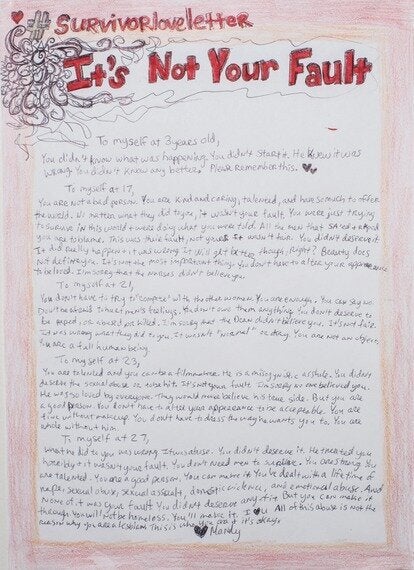 #SURVIVORloveletter
It's Not Your Fault
To myself at 3 years old,
You didn't know what was happening. You didn't start it. He knew it was
wrong. You didn't know any better. Please remember this.
To myself at 17,
You are not a bad person. You are kind and caring, talented, and have so much to offer
the world. No matter what they did to you, it wasn't your fault. You were just trying
to survive in this world + were doing what you were told. All the men that
you are to blame. This was their fault, not yours. It wasn't fair. You didn't deserve it.
It did really happen + it was wrong. It will get better though, right? Beauty does
not define you. It's not the most important thing. You don't have to alter your appearance
to be loved. I'm sorry that the nurses didn't believe you.
To myself at 21,
You don't have to try to "compete" with the other women. You are enough. You can say no.
Don't men's feelings. You don't owe them anything. You don't deserve to
be raped, or abused or killed. I'm sorry that the Dean didn't believe you. It's not fair.
It was wrong what they did to you. It wasn't "normal" or okay. You are not an object,
you are a full human being.
To myself at 23,
You are talented and you can be a filmmaker. He is a misogynistic asshole. You didn't
deserve the sexual abuse or to be hit. It's not your fault. I'm sorry no one believed you.
He was so loved by everyone. They would never believe his true side. But you are
a good person. You don't have to alter your appearance to be acceptable. You are
fine without makeup. You don't have to dress the way he wants you to. You are
whole without him.
To myself at 27,
What he did to you was wrong. It was abuse. You didn't deserve it. He treated you
horribly + it wasn't your fault. You don't need men to survive. You are strong. You
are talented. You are a good person. You can make it. You've dealt with a lifetime of
rape, sexual abuse, sexual assault, domestic violence, and emotional abuse. And
none of it was your fault. You didn't deserve any of it. But you can make it
through. You will not be homeless. You'll make it. I ♥ u. All of this abuse is not the
reason why you are a lesbian. This is who you are + it's okay.
♥ Mandy